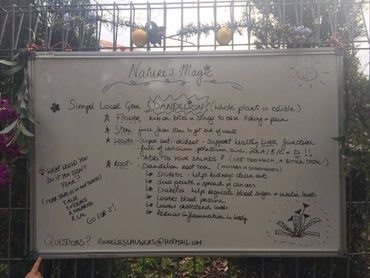 Nature's Magic
Simpel Local Gem {DANDELION} (whole plant is edible)
Flower - rub on bites & stings to ease itching + pain
Stem - juice from stem to get rid of warts
Leaves - Super anti-oxidant - support healthy liver function
full of calcium, potassium, zinc,
"ADD TO YOUR SALADS" (NOT TOO MUCH, A BITTER TASTE!)
Root - Dandelion root tea
Diuretic - helps kidneys clean out
Slows growth + spread of cancers
Diabetes - helps regulate blood sugar + insulin levels
Lowers blood pressure
Lowers cholesterol levels
Reduces inflammation in body
WHAT WOULD YOU
DO IF YOU DIDN'T
FEAR?
GO FOR IT!
QUESTIONS? ANNELIESLAUWERS@HOTMAIL.COM